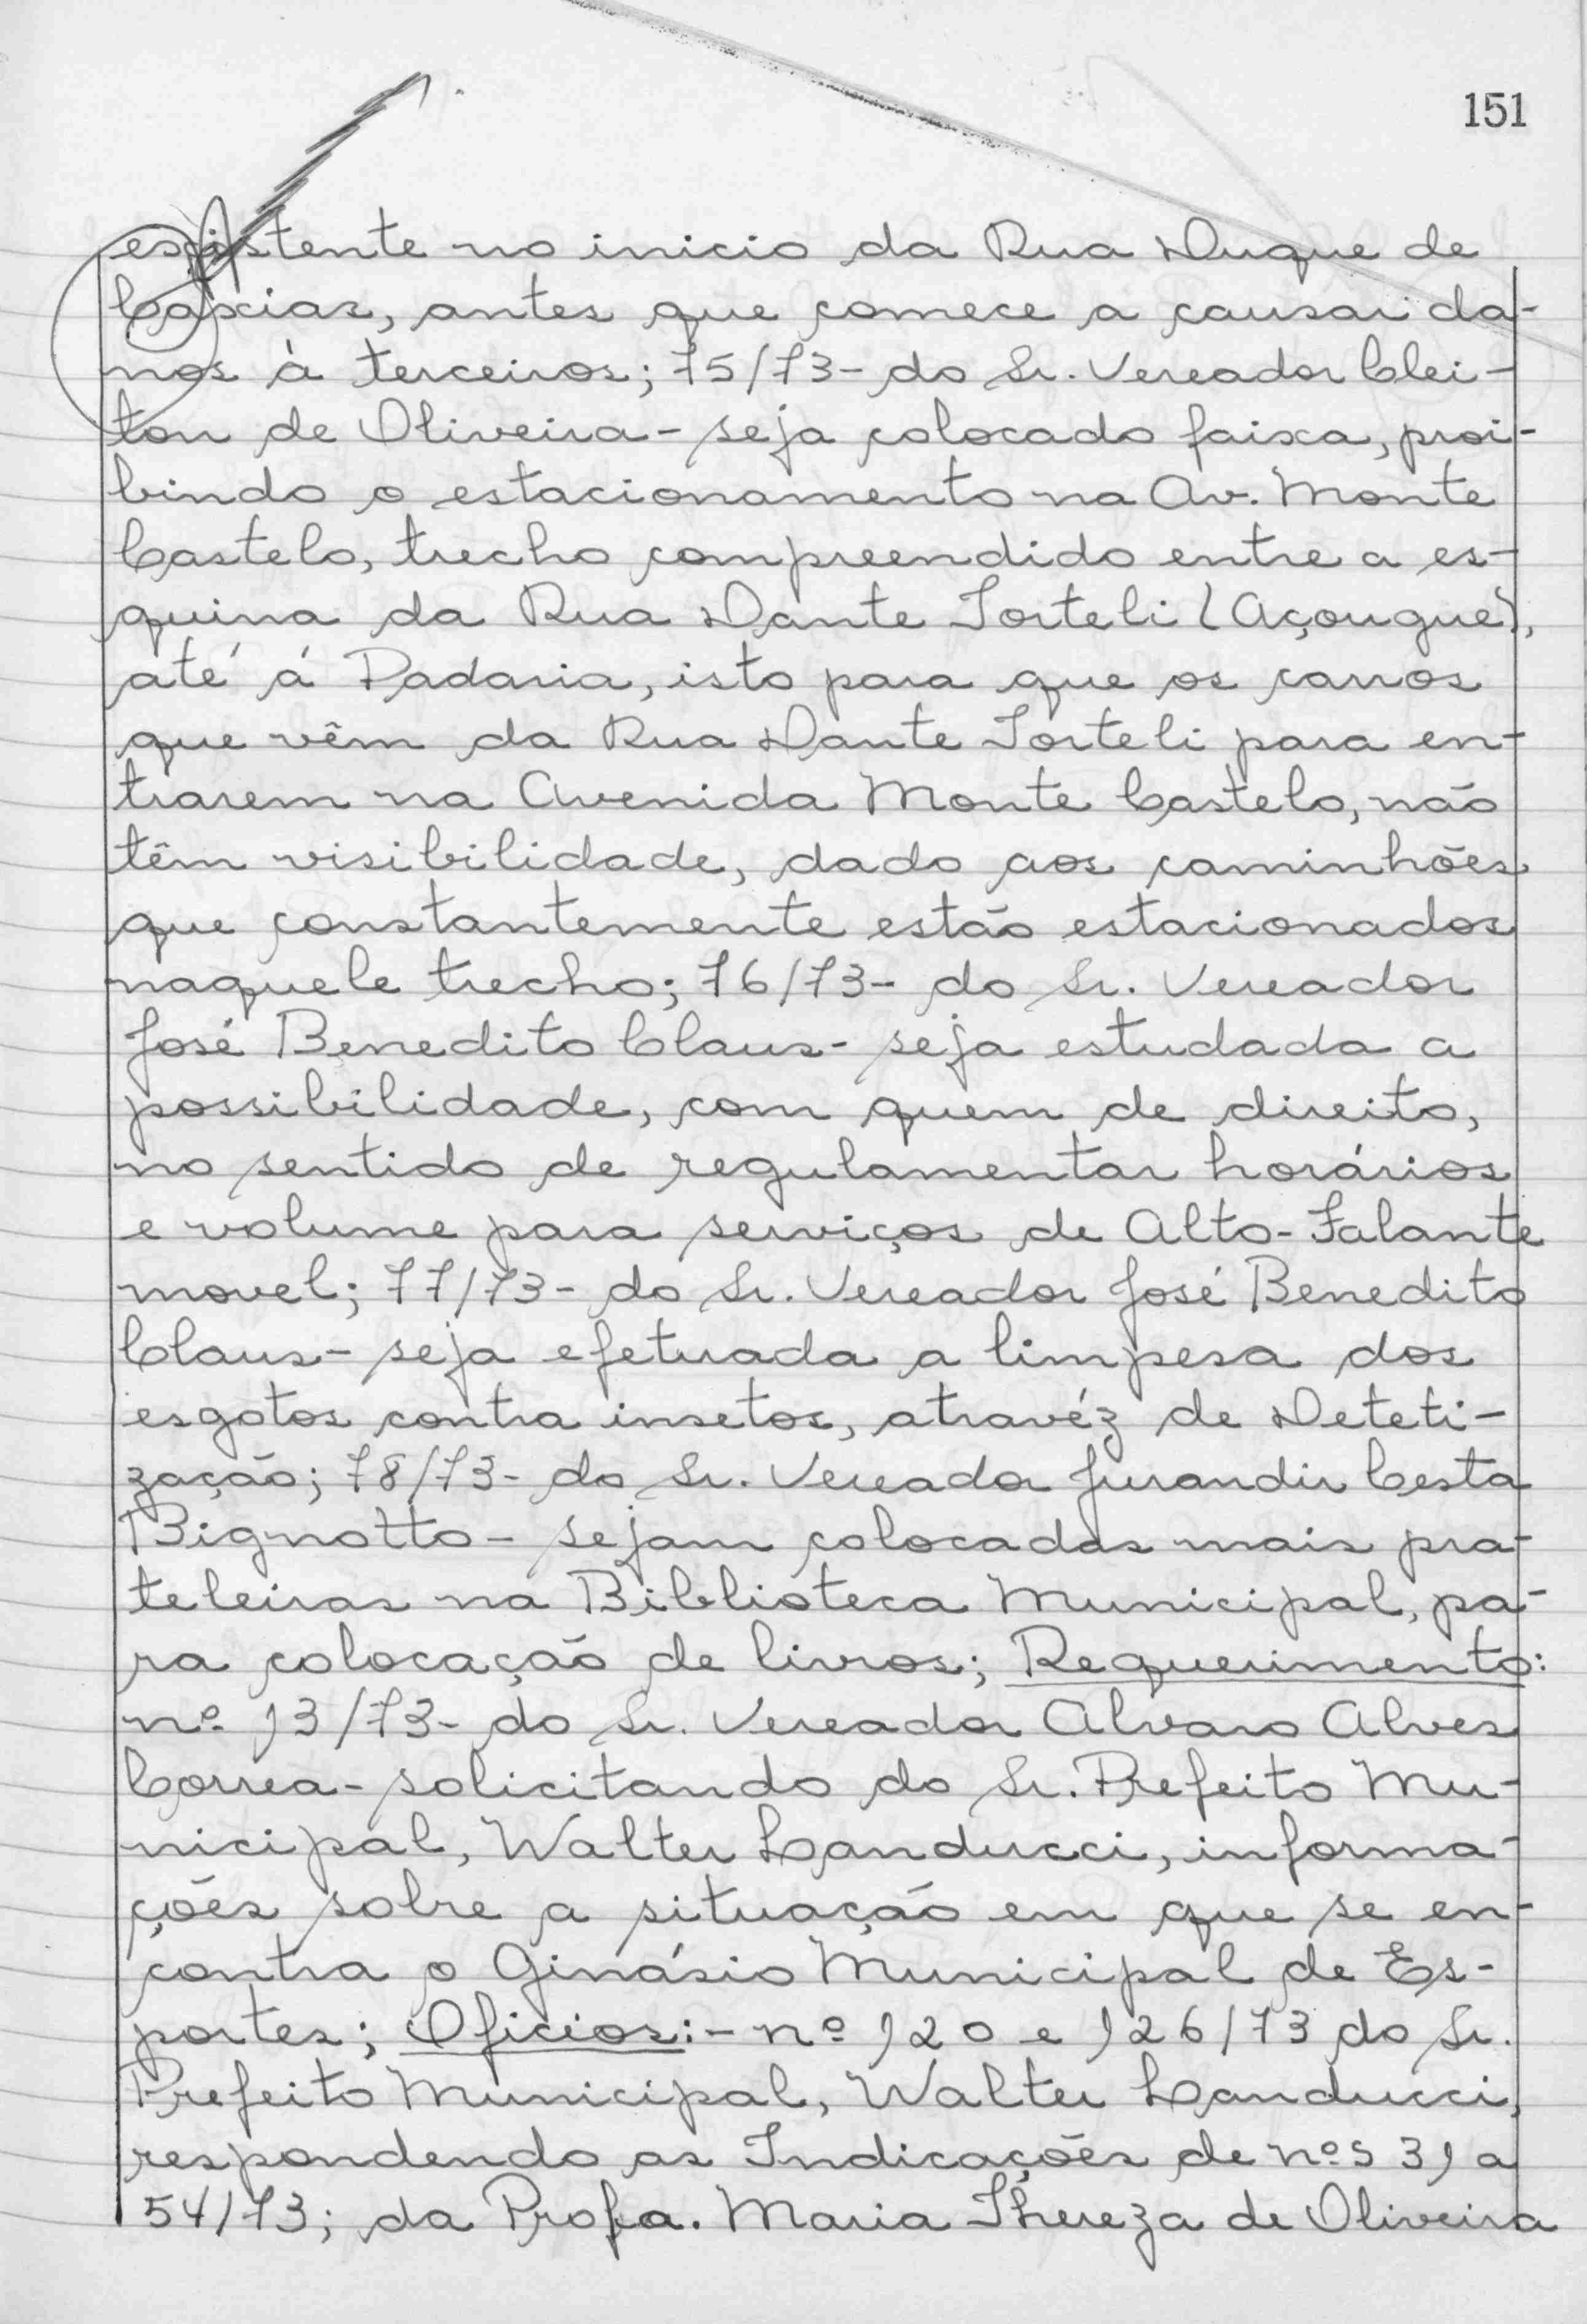 151
existente no inicio da Rua Duque de
Caxias, antes que comece a causar da-
nos à terceiros; 75/73- do Sr. Vereador Clei-
ton de Oliveira - seja colocado faixa, proi-
bindo o estacionamento na Av. Monte
Castelo, trecho compreendido entre a es-
quina da Rua Dante Torteli (Açougue),
até á Padaria, isto para que os carros
que vêm da Rua Dante Torteli para en-
trarem na Avenida Monte Castelo, não
têm visibilidade, dado aos caminhões
que constantemente estão estacionados
naquele trecho; 76/73- do Sr. Vereador
José Benedito Claus- seja estudada a
possibilidade, com quem de direito,
no sentido de regulamentar horários
e volume para serviços de Alto-Falante
movel; 77/73- do Sr. Vereador José Benedito
Claus- seja efetuada a limpesa dos
esgotos contra insetos, atravéz de Deteti-
zação; 78/73- do Sr. Vereador Jurandir Cesta
Bignotto- sejam colocadas mais pra-
teleiras na Biblioteca Municipal, pa-
ra colocação de livros; Requerimento:
nº 13/73- do Sr. Vereador Alvaro Alves
Correa- solicitando do Sr. Prefeito Mu-
nicipal, Walter Landucci, informa-
ções sobre a situação em que se en-
contra o Ginásio Municipal de Es-
portes; Oficios:- nº 120 e 126/73 do Sr.
Prefeito Municipal, Walter Landucci,
respondendo as Indicações de nºs 31 a
54/73; da Profa. Maria Thereza de Oliveira